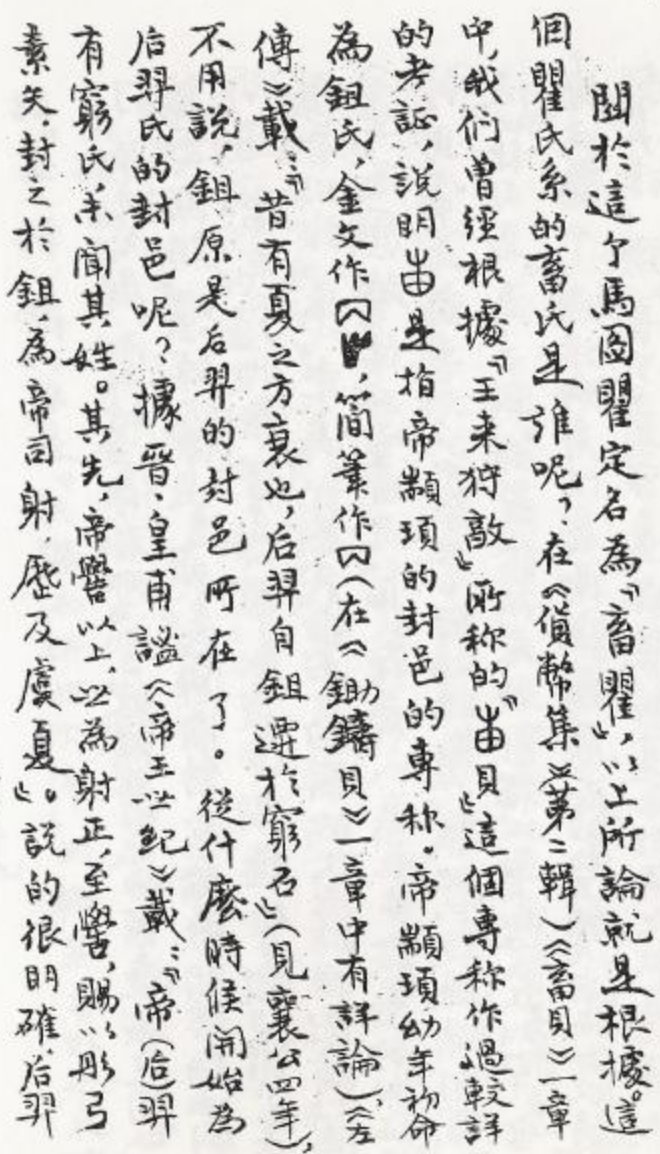 關於這个馬圖瞿定名為「畜瞿」，以上所論就是根據。這
個瞿氏系的畜氏是誰呢？在《貨幣集》(第二輯)《畜貝》一章
中，我们曾經根據「王来狩敵」所称的「甾貝」這個專称作過較詳
的考証，說明甾是指帝顓頊的封邑的專称。帝顓頊幼年初命
為鉏氏，金文作，簡筆作（在《鋤鑄貝》一章中有詳論）。《左
傳》載：「昔有夏之方衰也，后羿自鉏遷於窮石」（見襄公四年），
不用說，鉏原是后羿的封邑所在了。從什麼時候開始為
后羿氏的封邑呢？據晉、皇甫謐《帝王世紀》載：「帝(后)羿
有窮氏，未聞其姓。其先，帝嚳以上，世為射正，至嚳，賜以彤弓
素矢，封之於鉏，為帝司射，歷及虞夏」。說的很明確，后羿